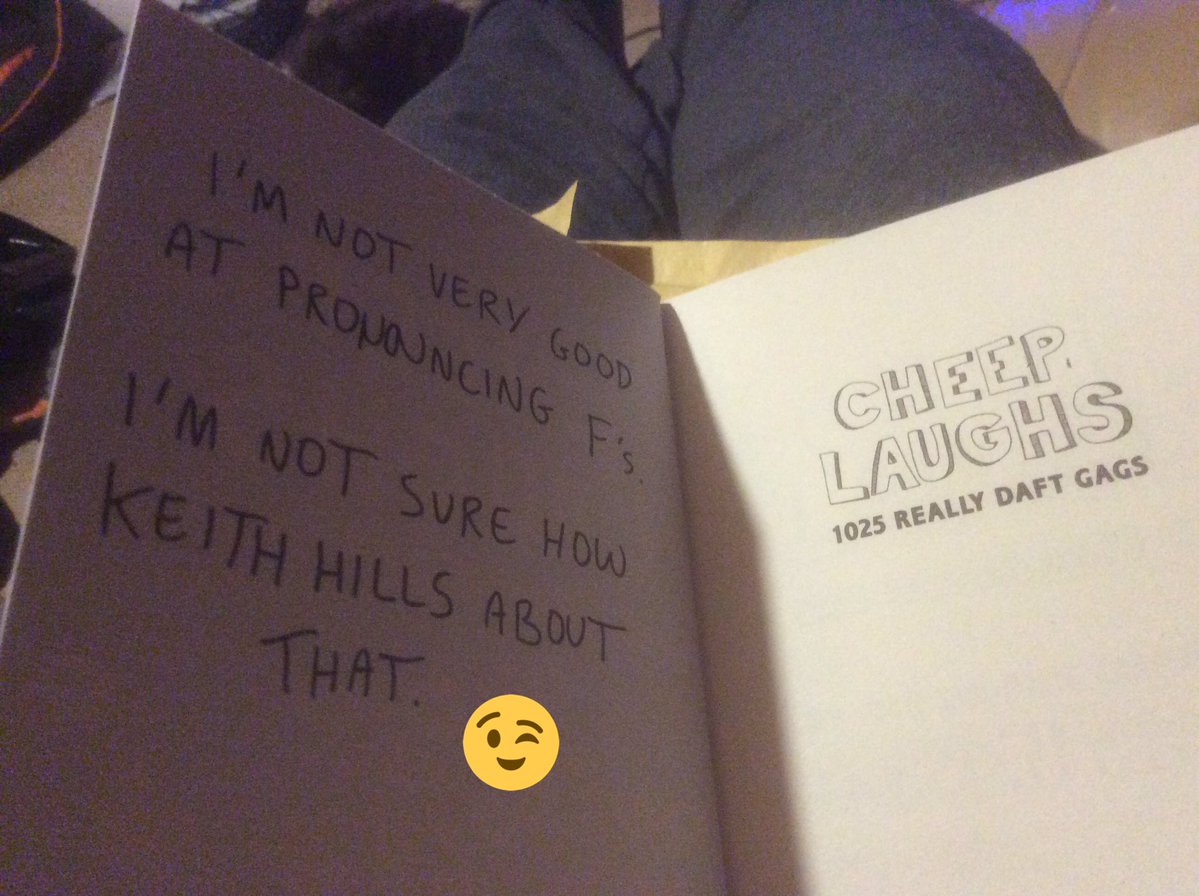 I'M NOT VERY GOOD
AT PRONOUNCING F's.
I'M NOT SURE HOW
KEITH HILLS ABOUT
THAT.
CHEEP
LAUGHS
1025 REALLY DAFT GAGS